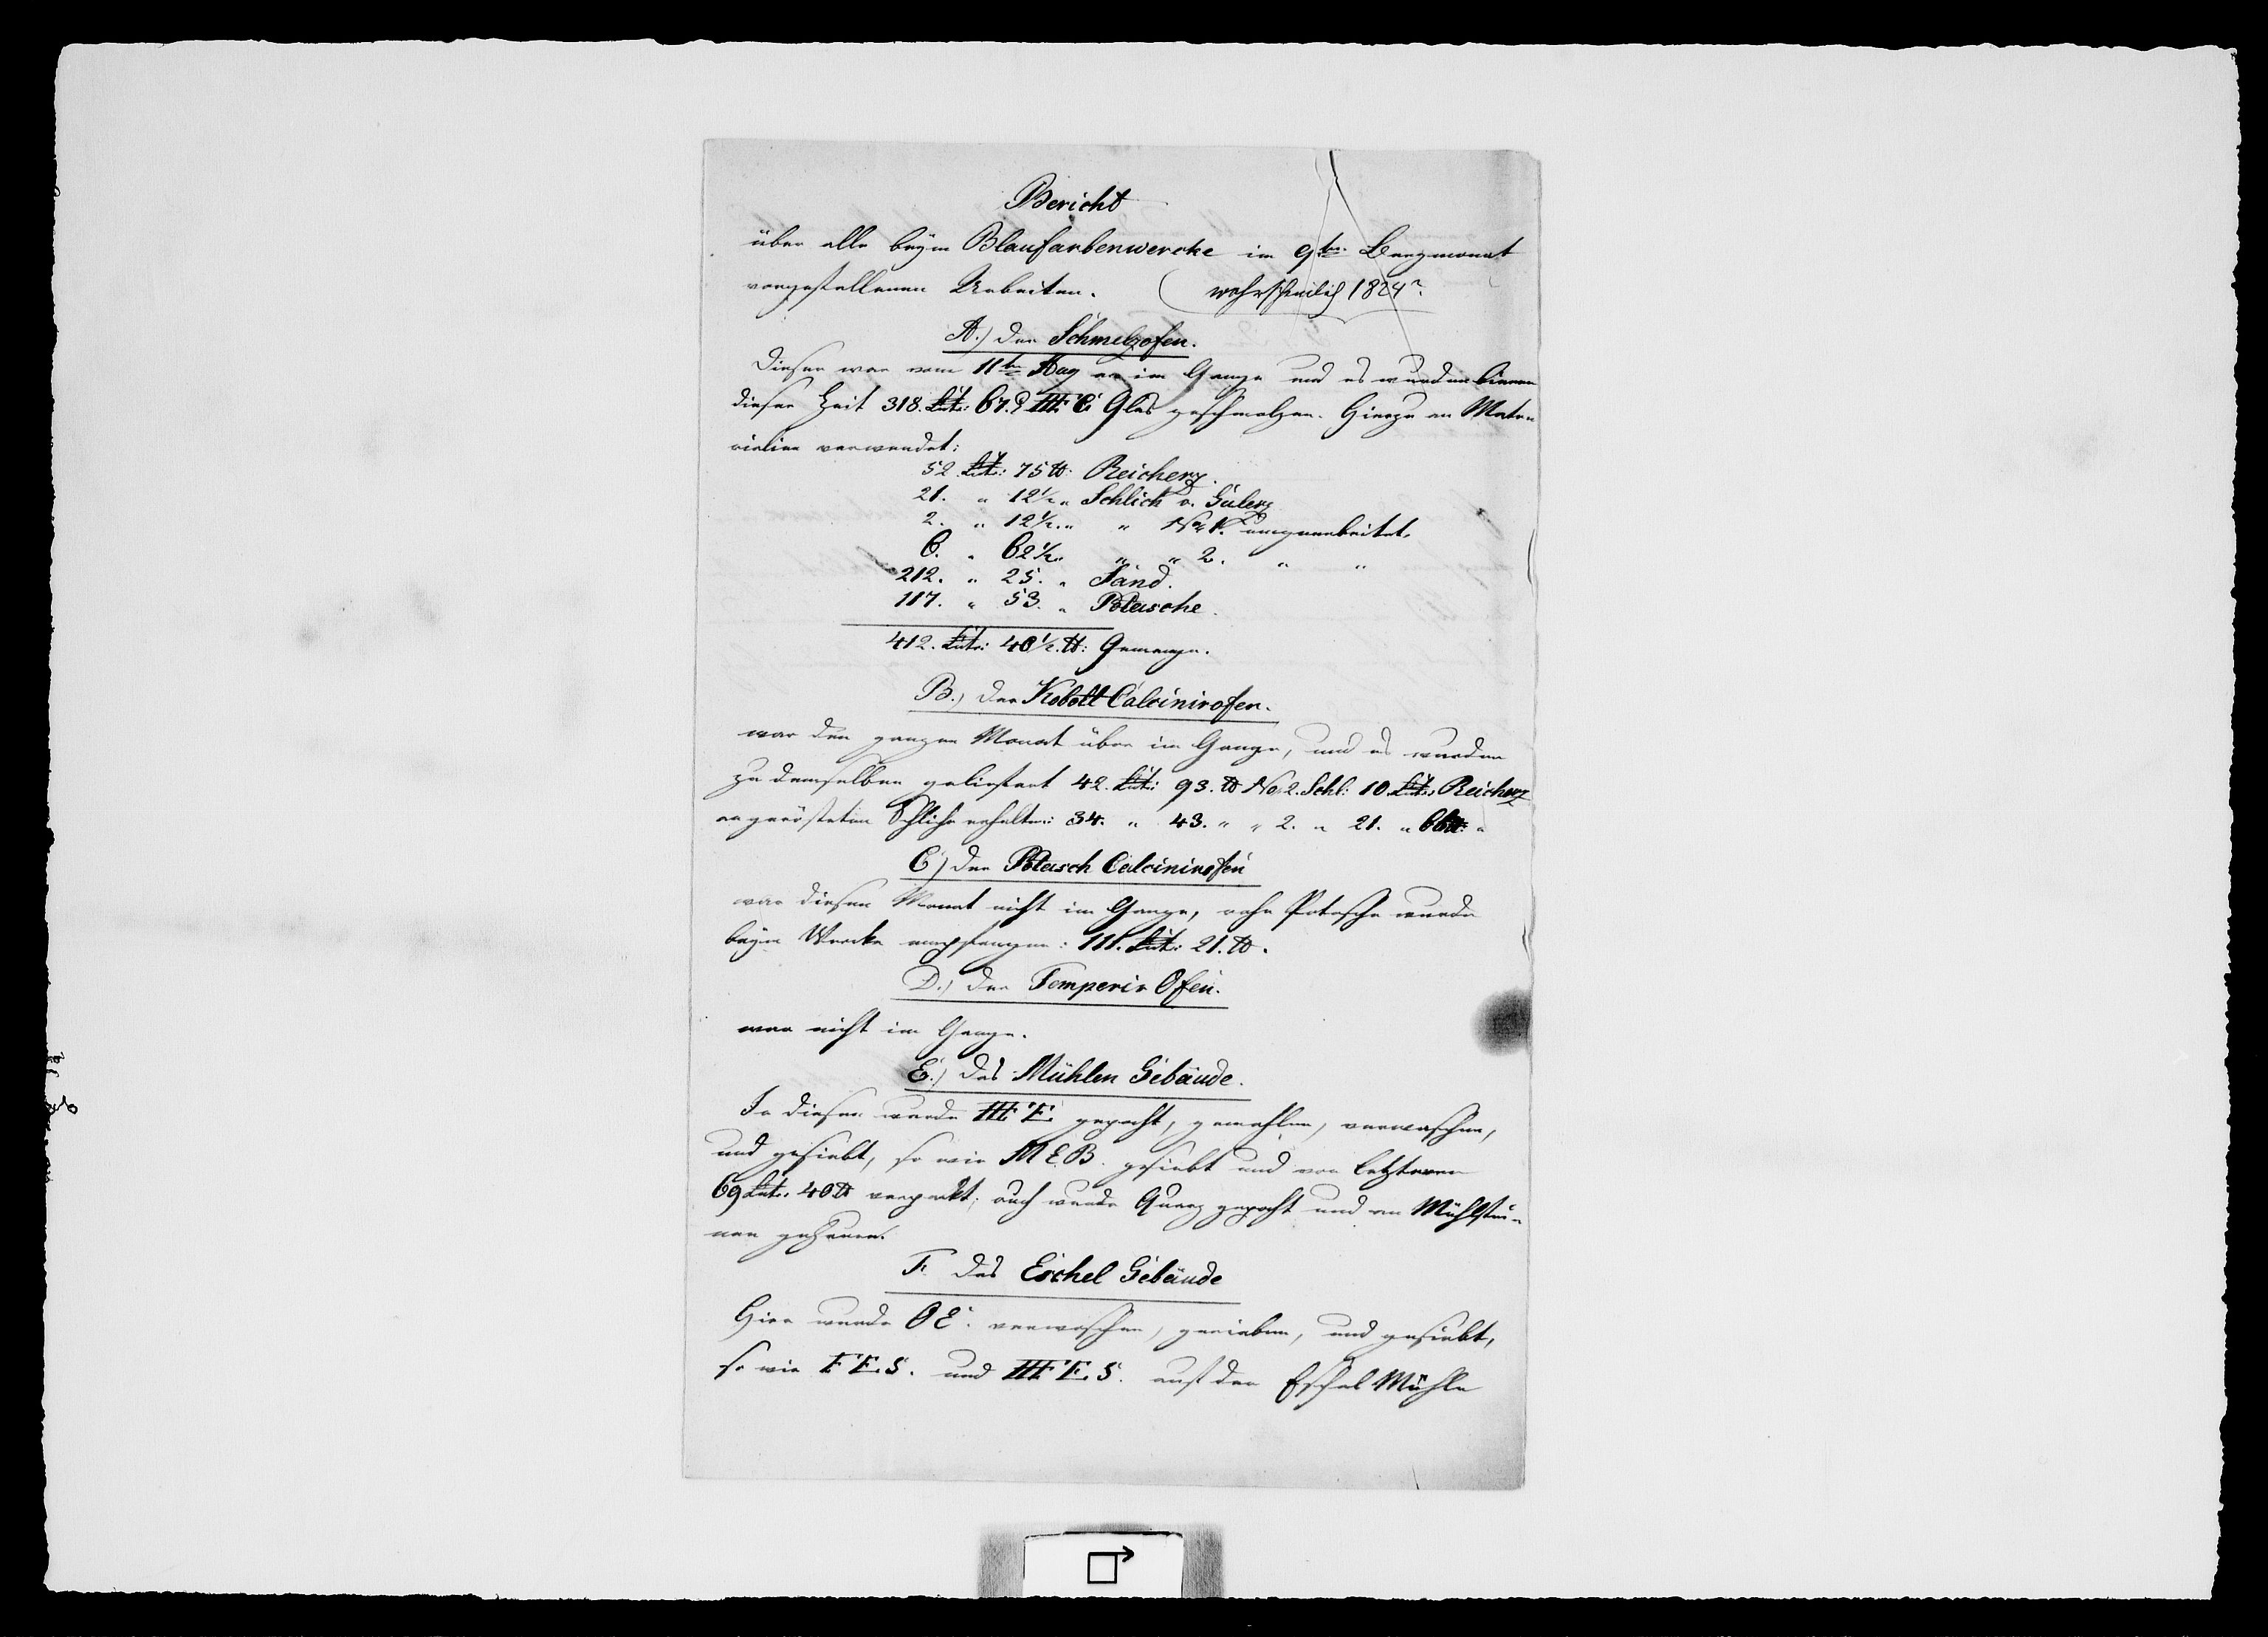 Bericht
über alle beÿm Blaufarbenwercke im 9ten Bergmonat
vorgefallenen Arbeiten. (wahrscheinlich 1824?
A.) der Schmelzofen.
Dieser war vom 11ten Aug an im Gange und es wurden binnen
dieser Zeit 318. Cntr: 67. ℔ HFC Glas geschmolzen. Hierzu an Mate-
rialien verwendet:
52 Cntr: 75 ℔: Reicherz.
21. " 12½ " Schlich v. Gülerz
2. " 12½. " " No 1. umgearbeitet.
6. " 62½. " " 2. " "
212. " 25. " Sand.
117. " 53. " Potasche.
412. Cntr: 40½. ℔: Gemenge.
B.) der Kobolt Calcinirofen.
war den ganzen Monat über im Gange, und es wurden
zu demselben geliefert 42. Cntr: 93. ℔ No. 2. Schl: 10. Cntr: Reicherz
an gerösteten Schliche erhalten: 34. " 43. " " 2. " 21. "
C) der Potasch Calcinirofen
war diesen Monat nicht im Gange, rohe Potasche wurde
beÿm Wercke empfangen: 111. Cntr: 21. ℔.
D.) der Temperir Ofen.
war nicht im Gange.
E.) das Mühlen Gebäude.
In diesen wurde gepocht, gemahlen, verwaschen,
und gesiebt, so wie M E B. gesiebt und von letzteren
69 Cntr: 40 ℔ verpackt; auch wurde Quarz gepocht und an Mühlstei-
nen gehauen.
F. das Eschel Gebäude
Hier wurde O E. verwaschen, gerieben, und gesiebt,
so wie F E. S. und S. auf der Eschel Mühle